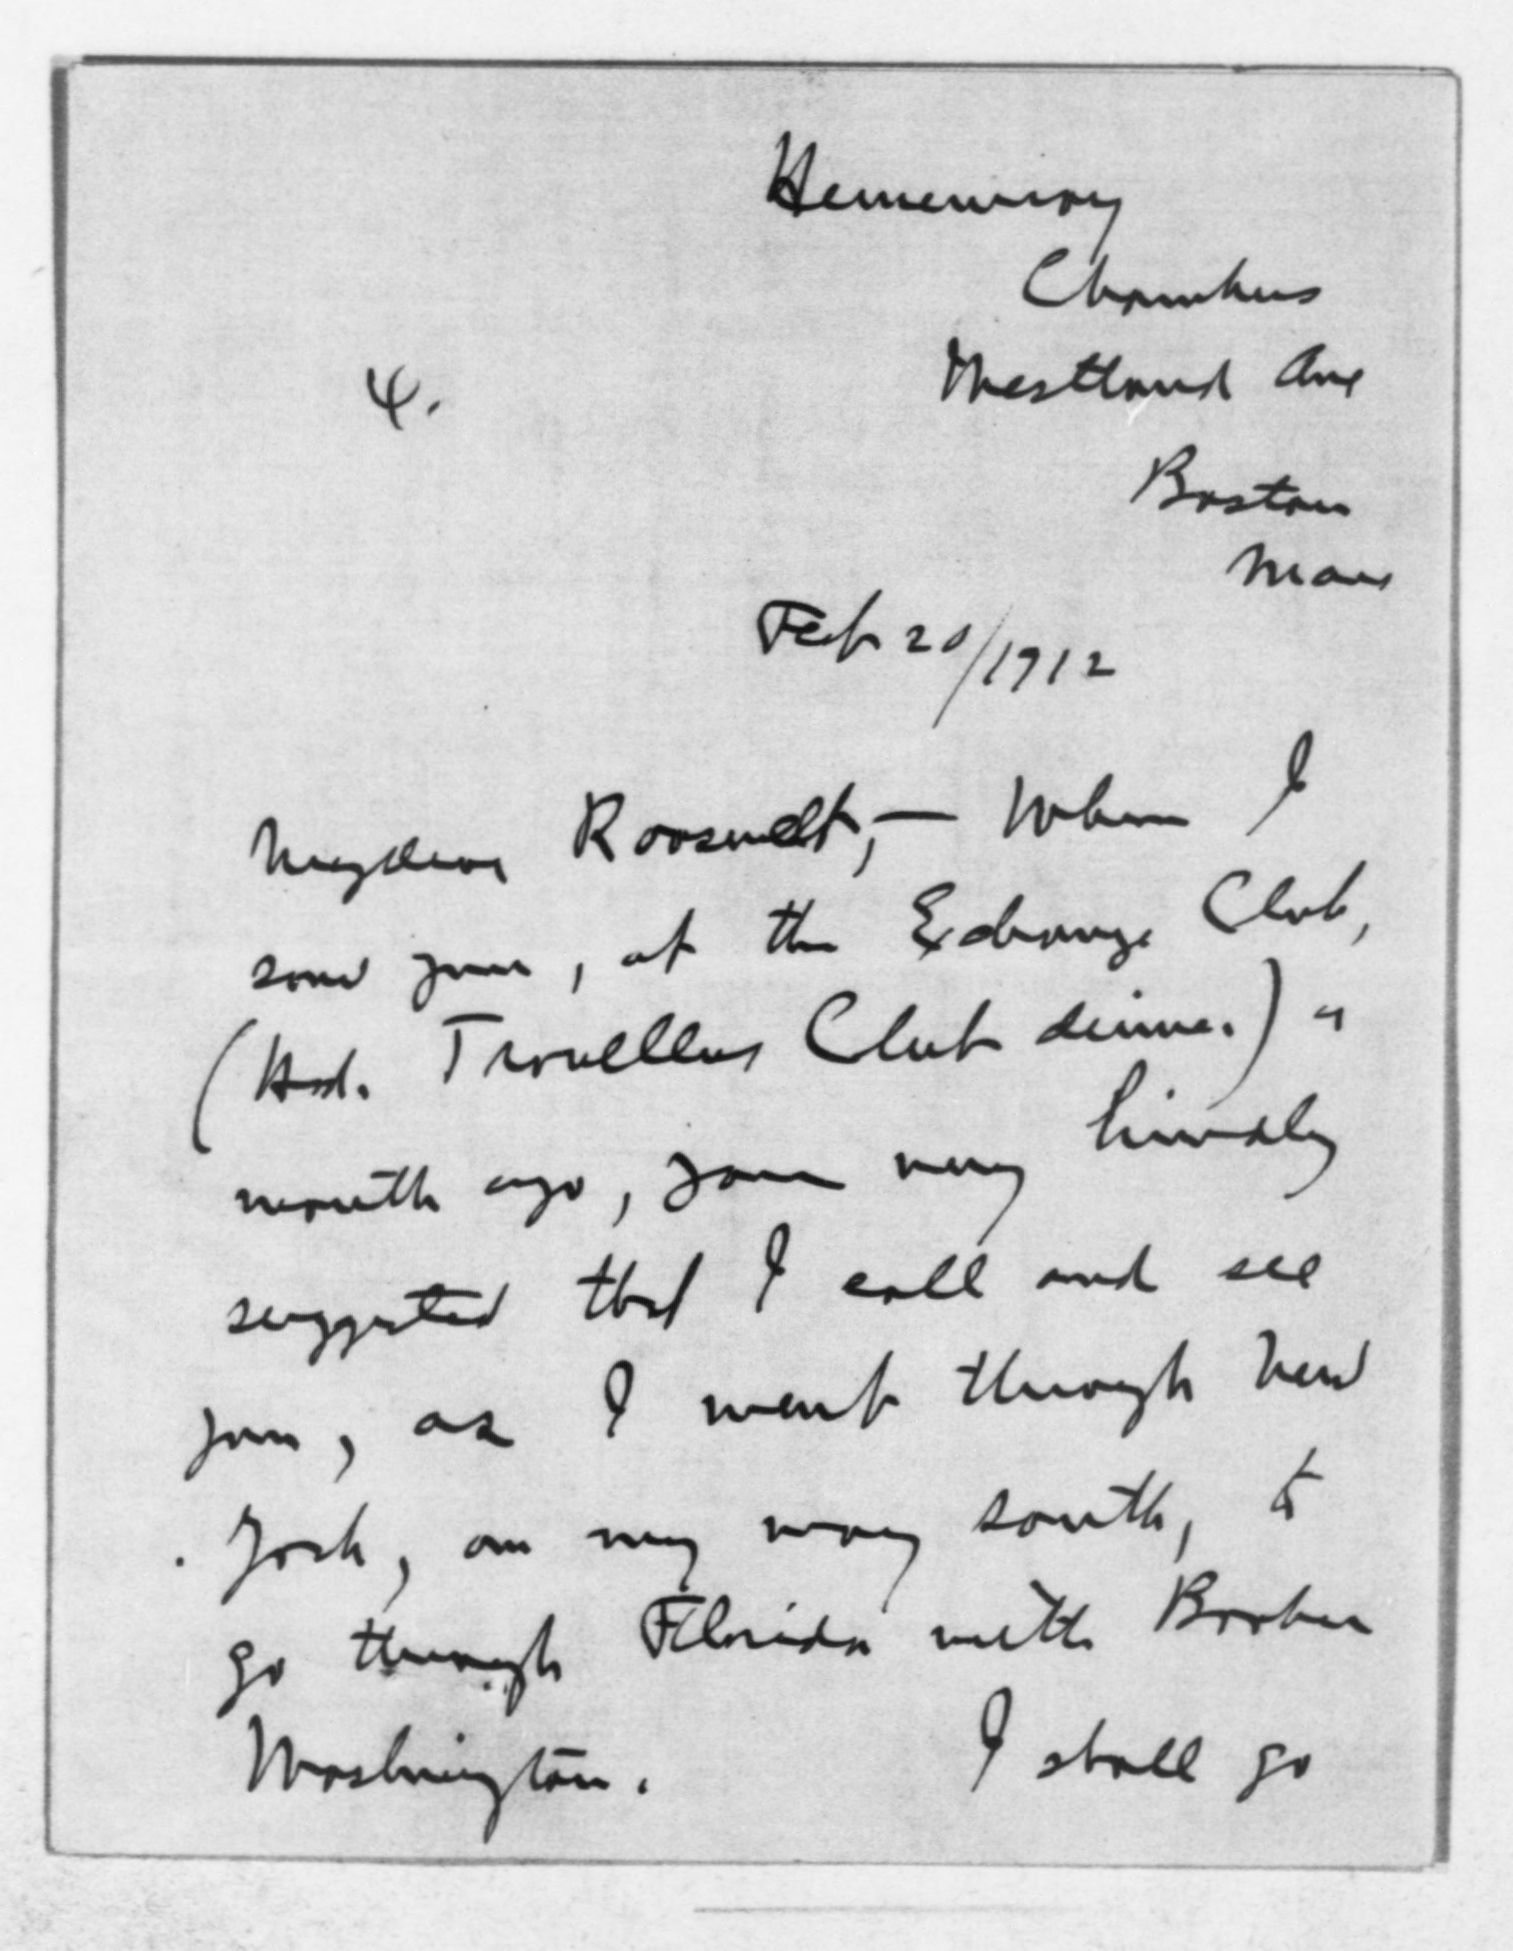 Hemenway
Chambers
4.
Westland Ave
Boston
Mass
Feb 20/1912
My dear Roosevelt,— When I
saw you, at the Exchange Club,
(Hvd. Travellers Club dinner) a
month ago, you very kindly
suggested that I call and see
you, as I went through New
York, on my way south, to
go through Florida with Booker
Washington. I shall go